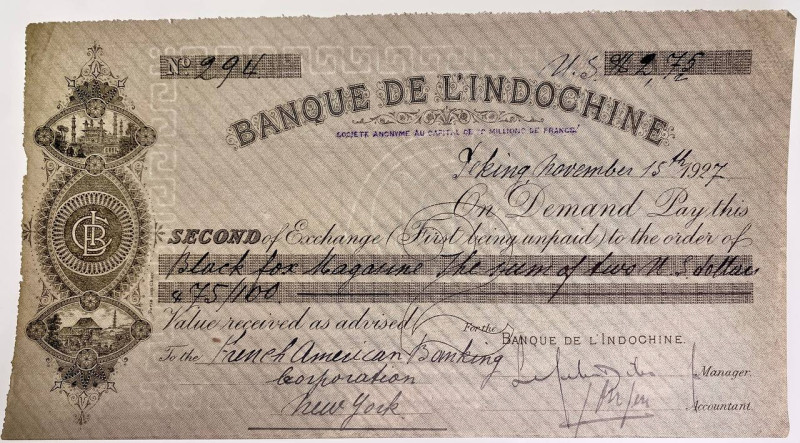 No 294 U.S. $ 2,75
BANQUE DE L'INDOCHINE
SOCIÉTÉ ANONYME AU CAPITAL DE MILLIONS DE FRANCS
Peking, november 15th 1927
On Demand Pay this
SECOND of Exchange (First being unpaid) to the order of
Black fox Magasine The sum of two U.S. dollars
& 75/100
Value received as advised
For the BANQUE DE L'INDOCHINE.
To the French American Banking
Corporation
New York
Manager.
Accountant.